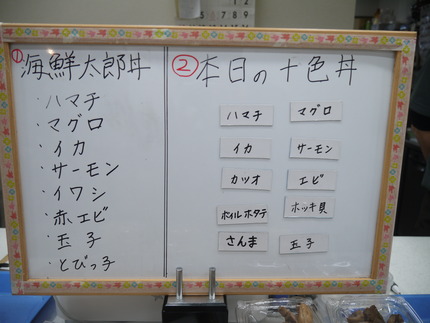 ① 海鮮太郎丼
・ハマチ
・マグロ
・イカ
・サーモン
・イワシ
・赤エビ
・玉子
・とびっ子
② 本日の十色丼
ハマチ マグロ
イカ サーモン
カツオ エビ
ボイルホタテ ホッキ貝
さんま 玉子